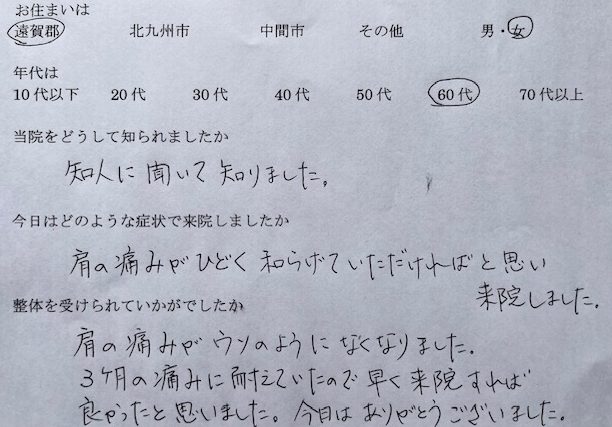 お住まいは
遠賀郡 北九州市 中間市 その他 男・女
年代は
10代以下 20代 30代 40代 50代 60代 70代以上
当院をどうして知られましたか
知人に聞いて知りました。
今日はどのような症状で来院しましたか
肩の痛みがひどく和らげていただければと思い
来院しました。
整体を受けられていかがでしたか
肩の痛みがウソのようになくなりました。
3ケ月の痛みに耐えていたので早く来院すれば
良かったと思いました。今日はありがとうございました。